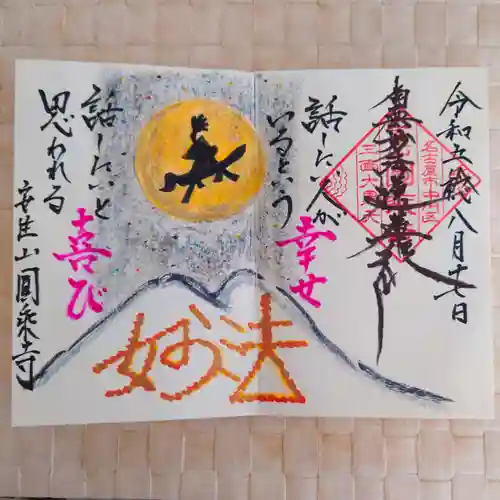 令和五歳八月十七日
南無妙法蓮華経
名古屋市中川区
三面大黒天
話したい人が
いるという
幸せ
話したいと
思われる
喜び
妙法
安生山圓乘寺